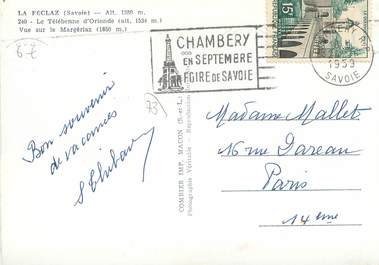 LA FECLAZ (Savoie) — Alt. 1350 m.
240 - Le Télébenne d'Orionde (alt. 1534 m.)
Vue sur le Margériaz (1850 m.)
CHAMBERY
EN SEPTEMBRE
FOIRE DE SAVOIE
15F
1959
SAVOIE
73
Bon souvenir
de vacances
COMBIER IMP. MACON (S.-et-L.)
Photographie Véritable - Reproduction
Madame Mallet
16 rue Dareau
Paris
14 eme